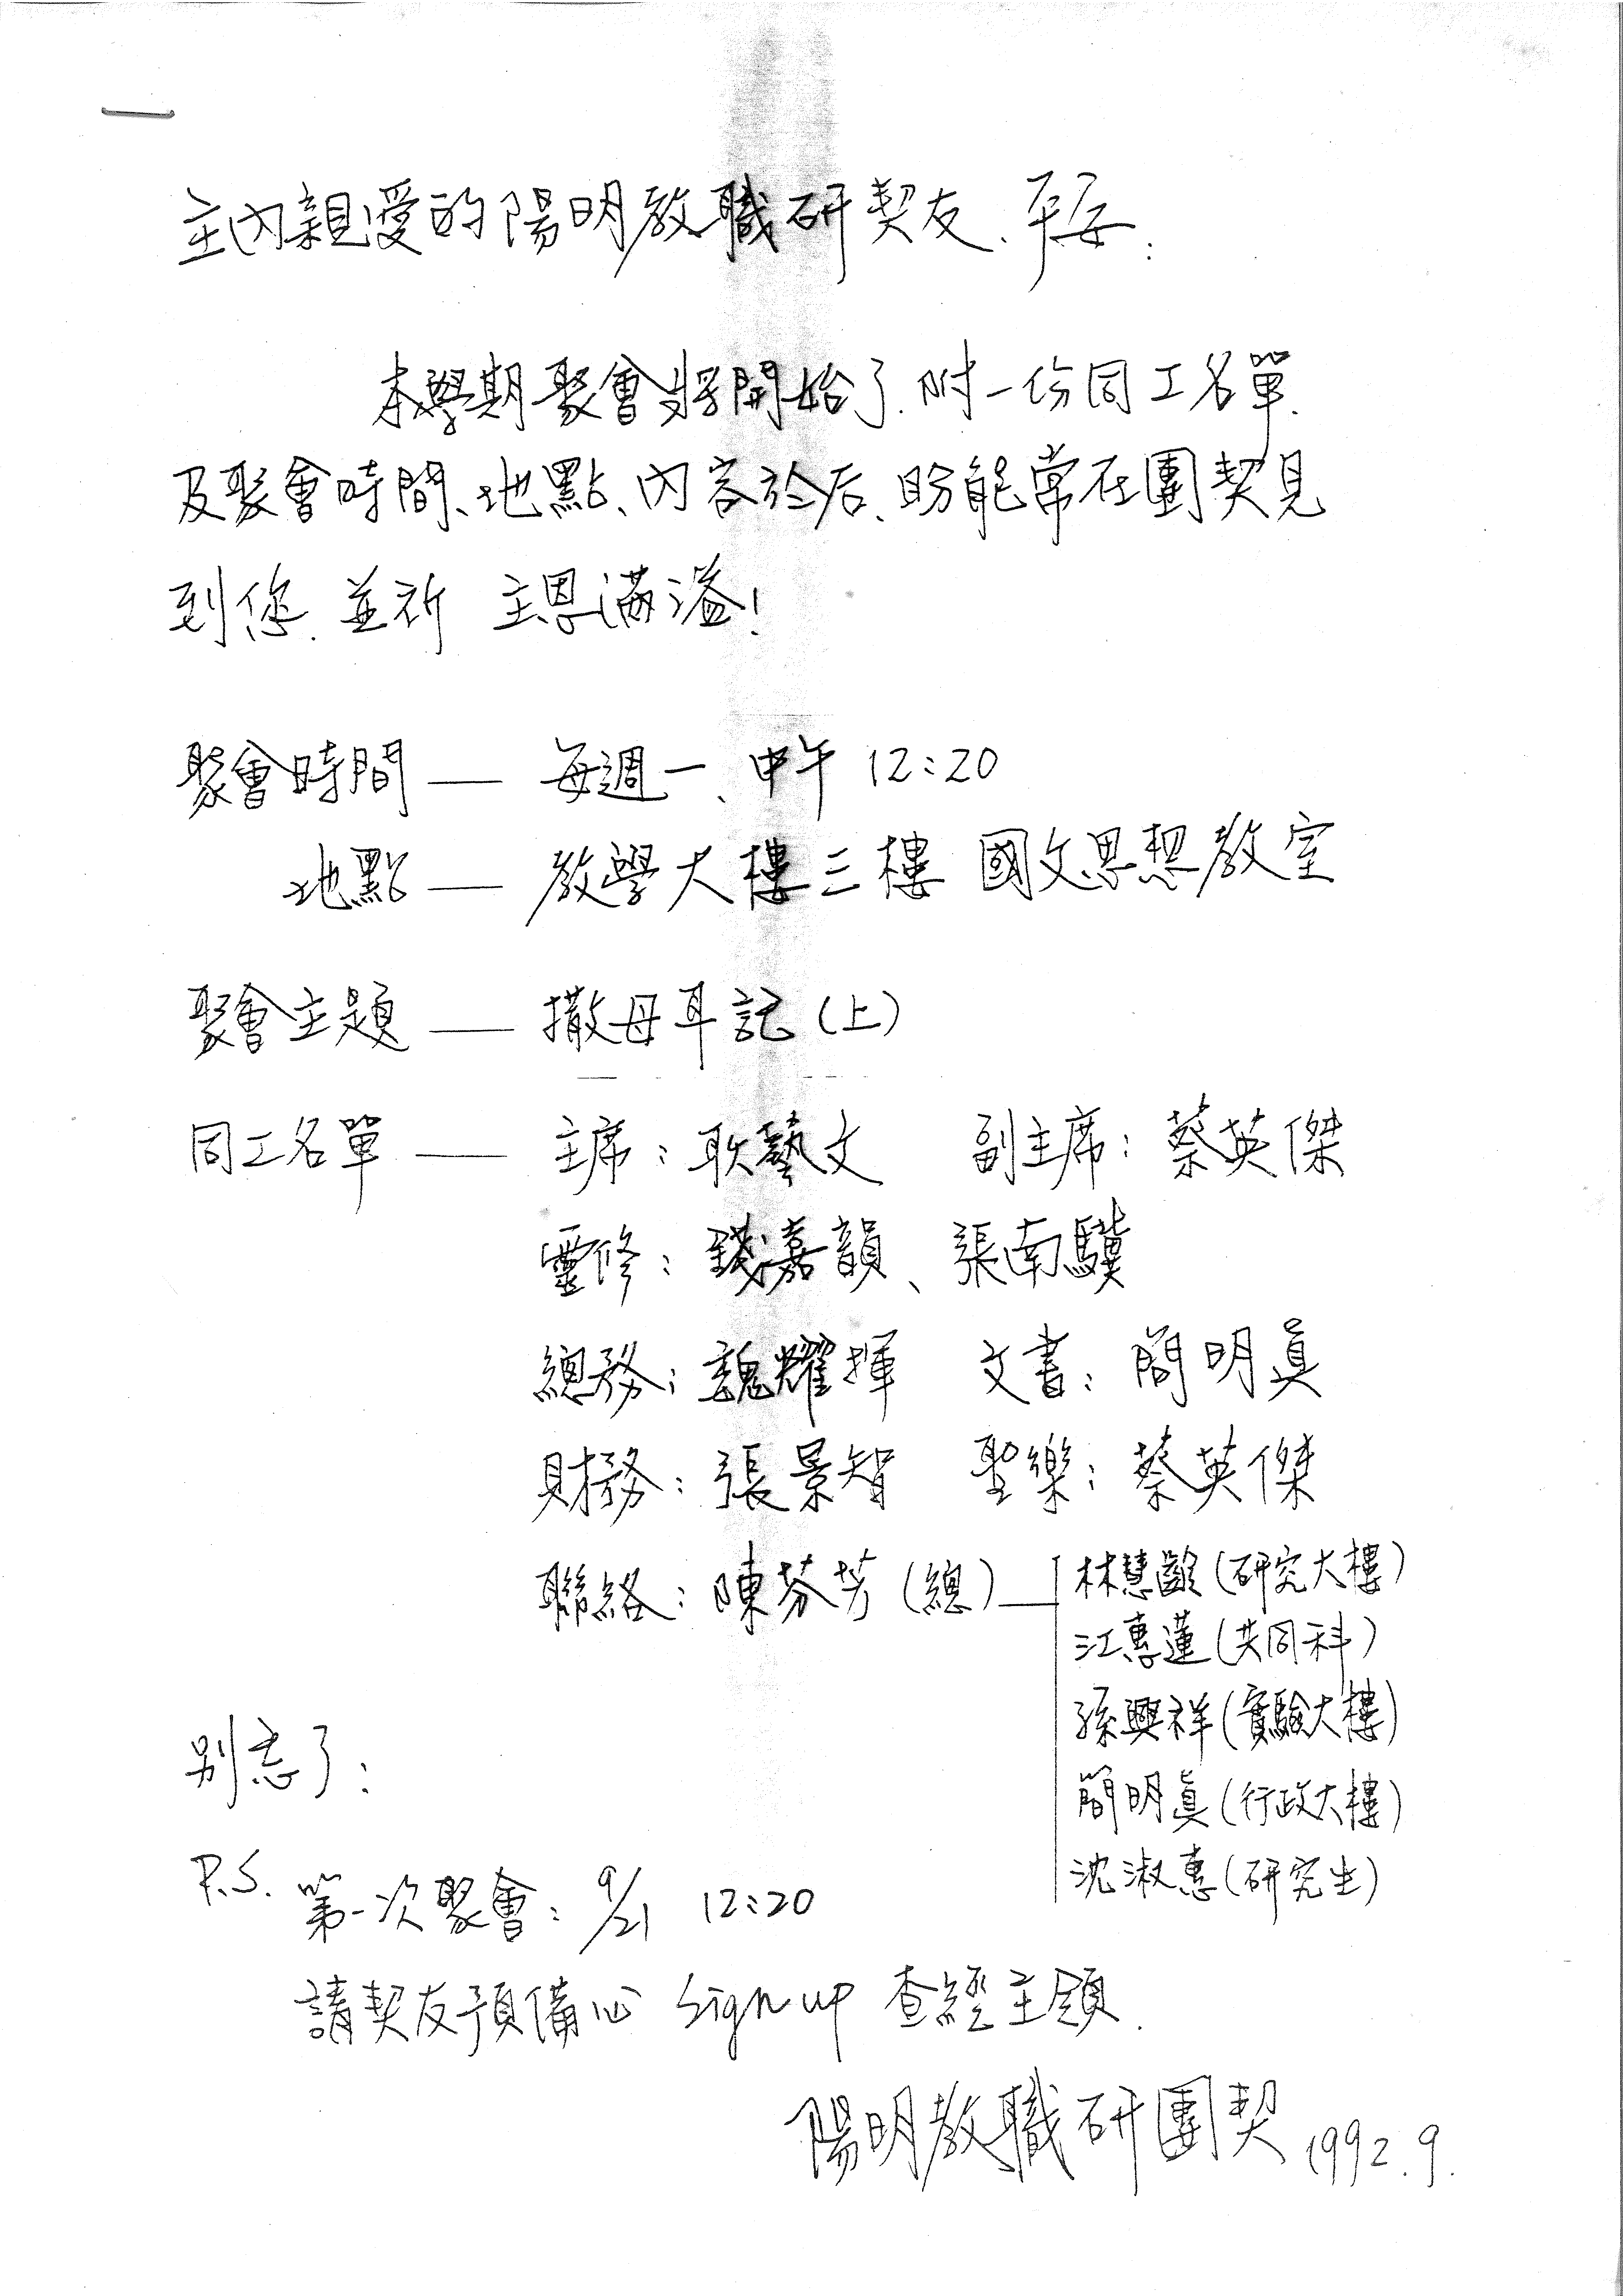 主內親愛的陽明教職研契友、平安:
本學期聚會將開始了.附一份同工名單.
及聚會時間、地點、內容於后、盼能常在團契見
到您.並祈 主恩滿溢!
聚會時間 — 每週一、中午 12:20
地點 — 教學大樓三樓 國文思想教室
聚會主題 — 撒母耳記(上)
同工名單 — 主席:耿藝文 副主席:蔡英傑
靈修:錢嘉韻、張南驥
總務:魏耀揮 文書:簡明真
財務:張景智 聖樂:蔡英傑
聯絡:陳芬芳(總)—
林慧齡(研究大樓)
江惠蓮(共同科)
孫興祥(實驗大樓)
簡明真(行政大樓)
沈淑惠(研究生)
別忘了:
P.S. 第一次聚會:9/21 12:20
請契友預備心 sign up 查經主題.
陽明教職研團契 1992.9.